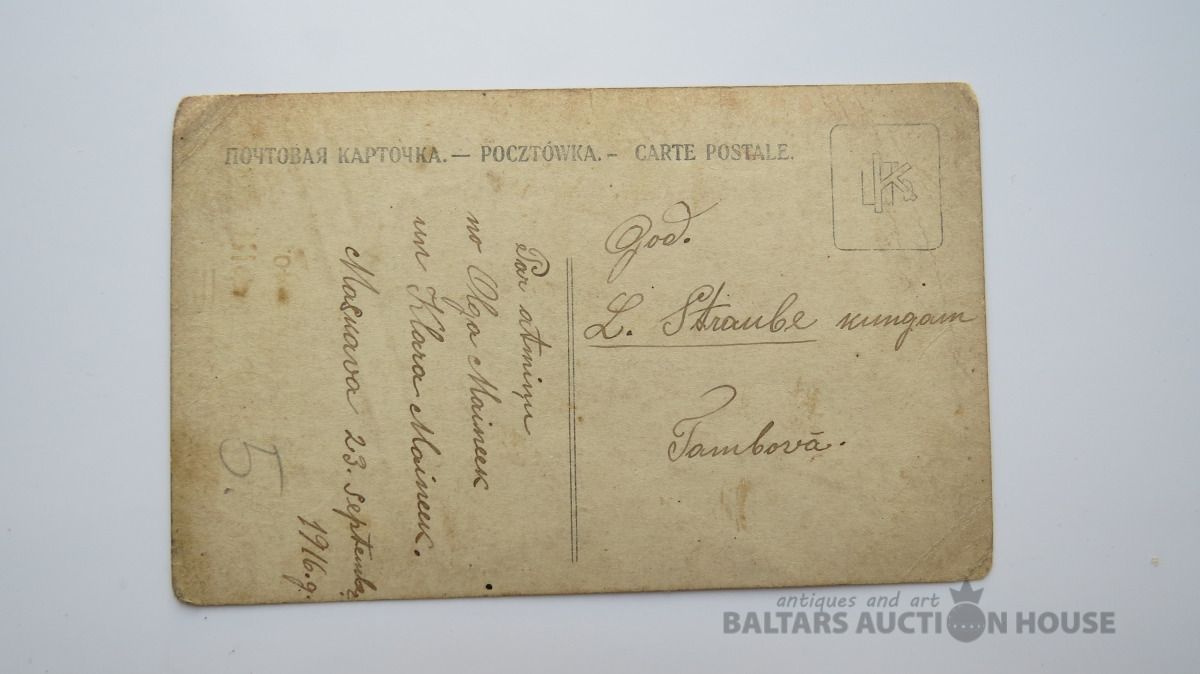 ПОЧТОВАЯ КАРТОЧКА.— POCZTÓWKA.– CARTE POSTALE.
Par atmiņu
no Olga Maineek
un Klara Maineek.
Maskava 23. Septembŗ
1916.g.
5.
God.
L. Straube kungam
Tambovā.
antiques and art
BALTARS AUCTION HOUSE